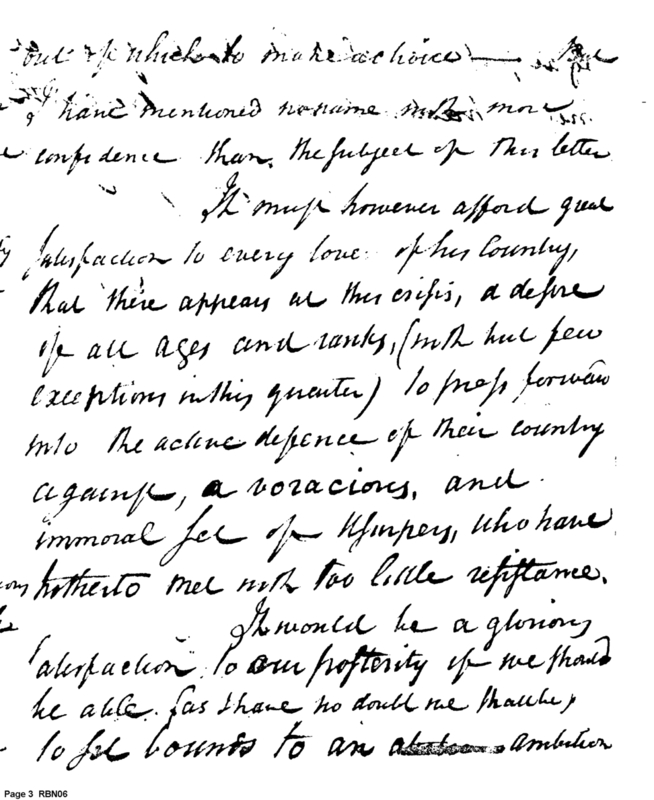 out of which to make a choice — But
I have mentioned no name with more
confidence than, the subject of this letter
It must however afford great
satisfaction to every love of his Country,
that there appears at this crisis, a desire
of all ages and ranks, (with but few
exceptions in this quarter) to press forward
into the active defence of their country
against, a voracious, and
immoral set of Usurpers, who have
hitherto met with too little resistance.
It would be a glorious
satisfaction to our posterity if we should
be able (as I have no doubt we shall be)
to set bounds to an ambition
Page 3 RBN06